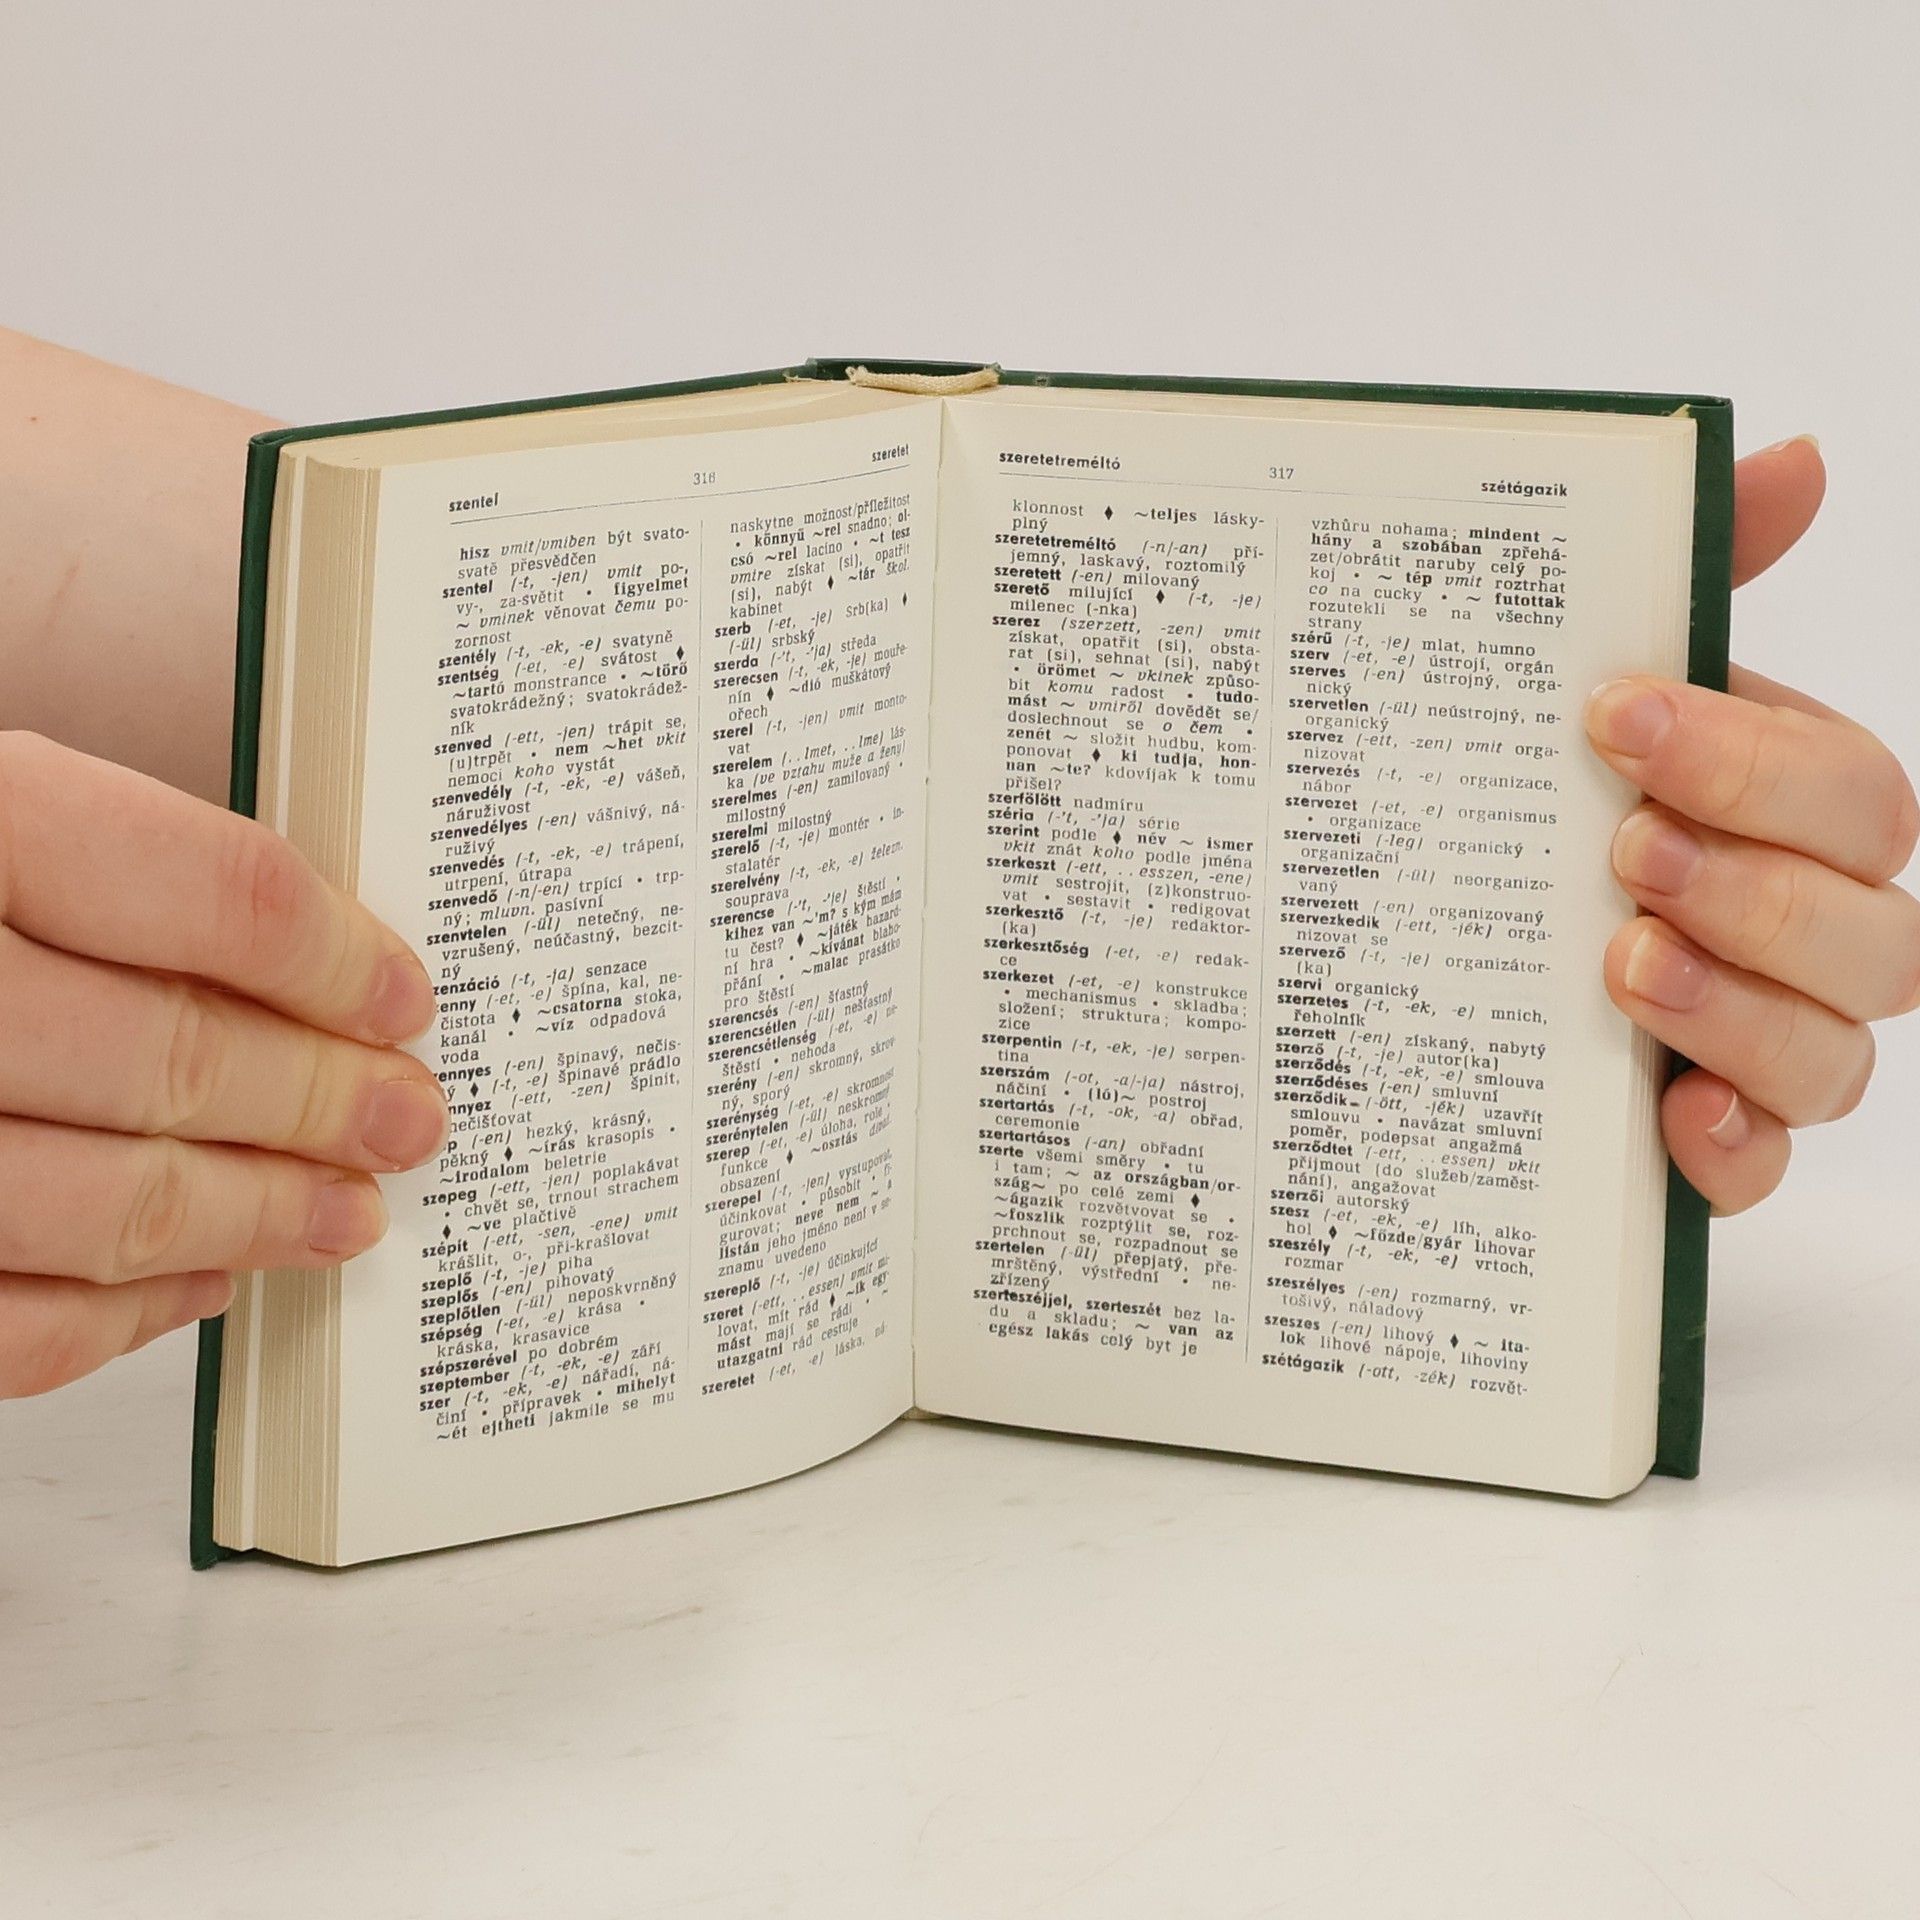 szentel
316
szeretet
hisz vmit/vmiben být svato-
svatě přesvědčen
szentel (-t, -jen) vmit po-,
vy-, za-světit • figyelmet
~ vminek věnovat čemu po-
zornost
szentély (-t, -ek, -e) svatyně
szentség (-et, -e) svátost ♦
~tartó monstrance • ~törő
svatokrádežný; svatokrádež-
ník
szenved (-ett, -jen) trápit se,
(u)trpět • nem ~het vkit
nemoci koho vystát
szenvedély (-t, -ek, -e) vášeň,
náruživost
szenvedélyes (-en) vášnivý, ná-
ruživý
szenvedés (-t, -ek, -e) trápení,
utrpení, útrapa
szenvedő (-n/-en) trpící • trp-
ný; mluvn. pasívní
szenvtelen (-ül) netečný, ne-
vzrušený, neúčastný, bezcit-
ný
zenzáció (-t, -ja) senzace
enny (-et, -e) špína, kal, ne-
čistota ♦ ~csatorna stoka,
kanál • ~víz odpadová
voda
ennyes (-en) špinavý, nečis-
ý ♦ (-t, -e) špinavé prádlo
nnyez (-ett, -zen) špinit,
nečišťovat
p (-en) hezký, krásný,
pěkný ♦ ~írás krasopis •
~irodalom beletrie
szepeg (-ett, -jen) poplakávat
• chvět se, trnout strachem
♦ ~ve plačtivě
szépít (-ett, -sen, -ene) vmit
krášlit, o-, při-krašlovat
szeplő (-t, -je) piha
szeplős (-en) pihovatý
szeplőtlen (-ül) neposkvrněný
szépség (-et, -e) krása •
kráska, krasavice
szépszerével po dobrém
szeptember (-t, -ek, -e) září
szer (-t, -ek, -e) nářadí, ná-
činí • přípravek • mihelyt
~ét ejtheti jakmile se mu
naskytne možnost/příležitost
• könnyű ~rel snadno; ol-
csó ~rel lacino • ~t tesz
vmire získat (si), opatřit
(si), nabýt ♦ ~tár škol.
kabinet
szerb (-et, -je) Srb(ka) ♦
(-ül) srbský
szerda (-'t, -'ja) středa
szerecsen (-t, -ek, -je) mouře-
nín ♦ ~dió muškátový
ořech
szerel (-t, -jen) vmit monto-
vat
szerelem (..lmet, ..lme) lás-
ka (ve vztahu muže a ženy)
szerelmes (-en) zamilovaný •
milostný
szerelmi milostný
szerelő (-t, -je) montér • in-
stalatér
szerelvény (-t, -ek, -e) želez.
souprava
szerencse (-'t, -'je) štěstí •
kihez van ~'m? s kým mám
tu čest? ♦ ~játék hazard-
ní hra • ~kívánat blaho-
přání • ~malac prasátko
pro štěstí
szerencsés (-en) šťastný
szerencsétlen (-ül) nešťastný
szerencsétlenség (-et, -e) ne-
štěstí • nehoda
szerény (-en) skromný, skrov-
ný, sporý
szerénység (-et, -e) skromnost
szerénytelen (-ül) neskromný
szerep (-et, -e) úloha, role,
funkce ♦ ~osztás divad.
obsazení
szerepel (-t, -jen) vystupovat,
účinkovat • působit • fi-
gurovat; neve nem ~ a
listán jeho jméno není v se-
znamu uvedeno
szereplő (-t, -je) účinkující
szeret (-ett, ..essen) vmit mi-
lovat, mít rád ♦ ~ik egy-
mást mají se rádi • ~
utazgatni rád cestuje
szeretet (-et, -e) láska, ná-
szeretetreméltó
317
szétágazik
klonnost ♦ ~teljes lásky-
plný
szeretetreméltó (-n/-an) pří-
jemný, laskavý, roztomilý
szeretett (-en) milovaný
szerető milující ♦ (-t, -je)
milenec (-nka)
szerez (szerzett, -zen) vmit
získat, opatřit (si), obsta-
rat (si), sehnat (si), nabýt
• örömet ~ vkinek způso-
bit komu radost • tudo-
mást ~ vmiről dovědět se/
doslechnout se o čem •
zenét ~ složit hudbu, kom-
ponovat ♦ ki tudja, hon-
nan ~te? kdovíjak k tomu
přišel?
szerfölött nadmíru
széria (-'t, -'ja) série
szerint podle ♦ név ~ ismer
vkit znát koho podle jména
szerkeszt (-ett, ..esszen, -ene)
vmit sestrojit, (z)konstruo-
vat • sestavit • redigovat
szerkesztő (-t, -je) redaktor-
(ka)
szerkesztőség (-et, -e) redak-
ce
szerkezet (-et, -e) konstrukce
• mechanismus • skladba;
složení; struktura; kompo-
zice
szerpentin (-t, -ek, -je) serpen-
tina
szerszám (-ot, -a/-ja) nástroj,
náčiní • (ló)~ postroj
szertartás (-t, -ok, -a) obřad,
ceremonie
szertartásos (-an) obřadní
szerte všemi směry • tu
i tam; ~ az országban/or-
szág~ po celé zemi ♦
~ágazik rozvětvovat se •
~foszlik rozptýlit se, roz-
prchnout se, rozpadnout se
szertelen (-ül) přepjatý, pře-
mrštěný, výstřední • ne-
zřízený
szerteszéjjel, szerteszét bez la-
du a skladu; ~ van az
egész lakás celý byt je
vzhůru nohama; mindent ~
hány a szobában zpřehá-
zet/obrátit naruby celý po-
koj • ~ tép vmit roztrhat
co na cucky • ~ futottak
rozutekli se na všechny
strany
szérű (-t, -je) mlat, humno
szerv (-et, -e) ústrojí, orgán
szerves (-en) ústrojný, orga-
nický
szervetlen (-ül) neústrojný, ne-
organický
szervez (-ett, -zen) vmit orga-
nizovat
szervezés (-t, -e) organizace,
nábor
szervezet (-et, -e) organismus
• organizace
szervezeti (-leg) organický •
organizační
szervezetlen (-ül) neorganizo-
vaný
szervezett (-en) organizovaný
szervezkedik (-ett, -jék) orga-
nizovat se
szervező (-t, -je) organizátor-
(ka)
szervi organický
szerzetes (-t, -ek, -e) mnich,
řeholník
szerzett (-en) získaný, nabytý
szerző (-t, -je) autor(ka)
szerződés (-t, -ek, -e) smlouva
szerződéses (-en) smluvní
szerződik (-ött, -jék) uzavřít
smlouvu • navázat smluvní
poměr, podepsat angažmá
szerződtet (-ett, ..essen) vkit
přijmout (do služeb/zaměst-
nání), angažovat
szerzői autorský
szesz (-et, -ek, -e) líh, alko-
hol ♦ ~főzde/gyár lihovar
szeszély (-t, -ek, -e) vrtoch,
rozmar
szeszélyes (-en) rozmarný, vr-
tošivý, náladový
szeszes (-en) lihový ♦ ~ ita-
lok lihové nápoje, lihoviny
szétágazik (-ott, -zék) rozvět-